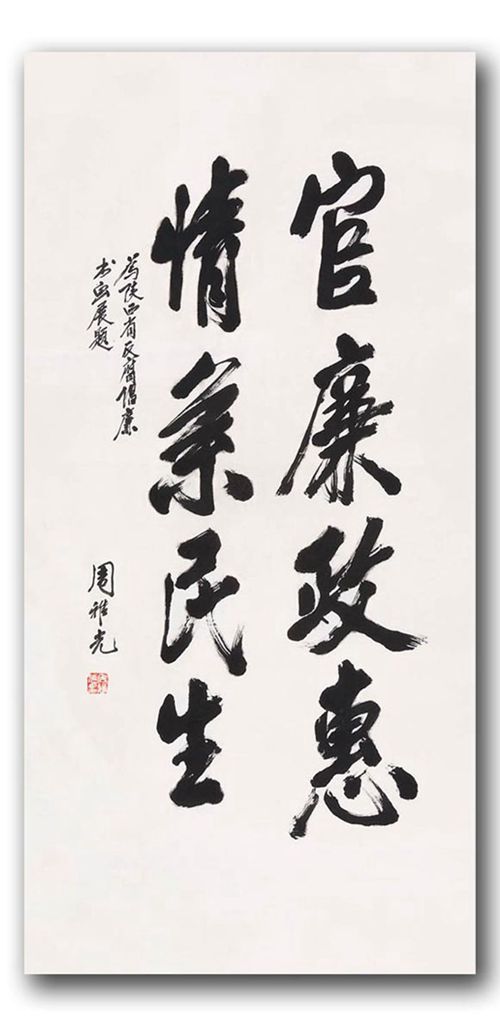 官廉政惠
情系民生
为陕西省反腐倡廉
书画展题
周雅光